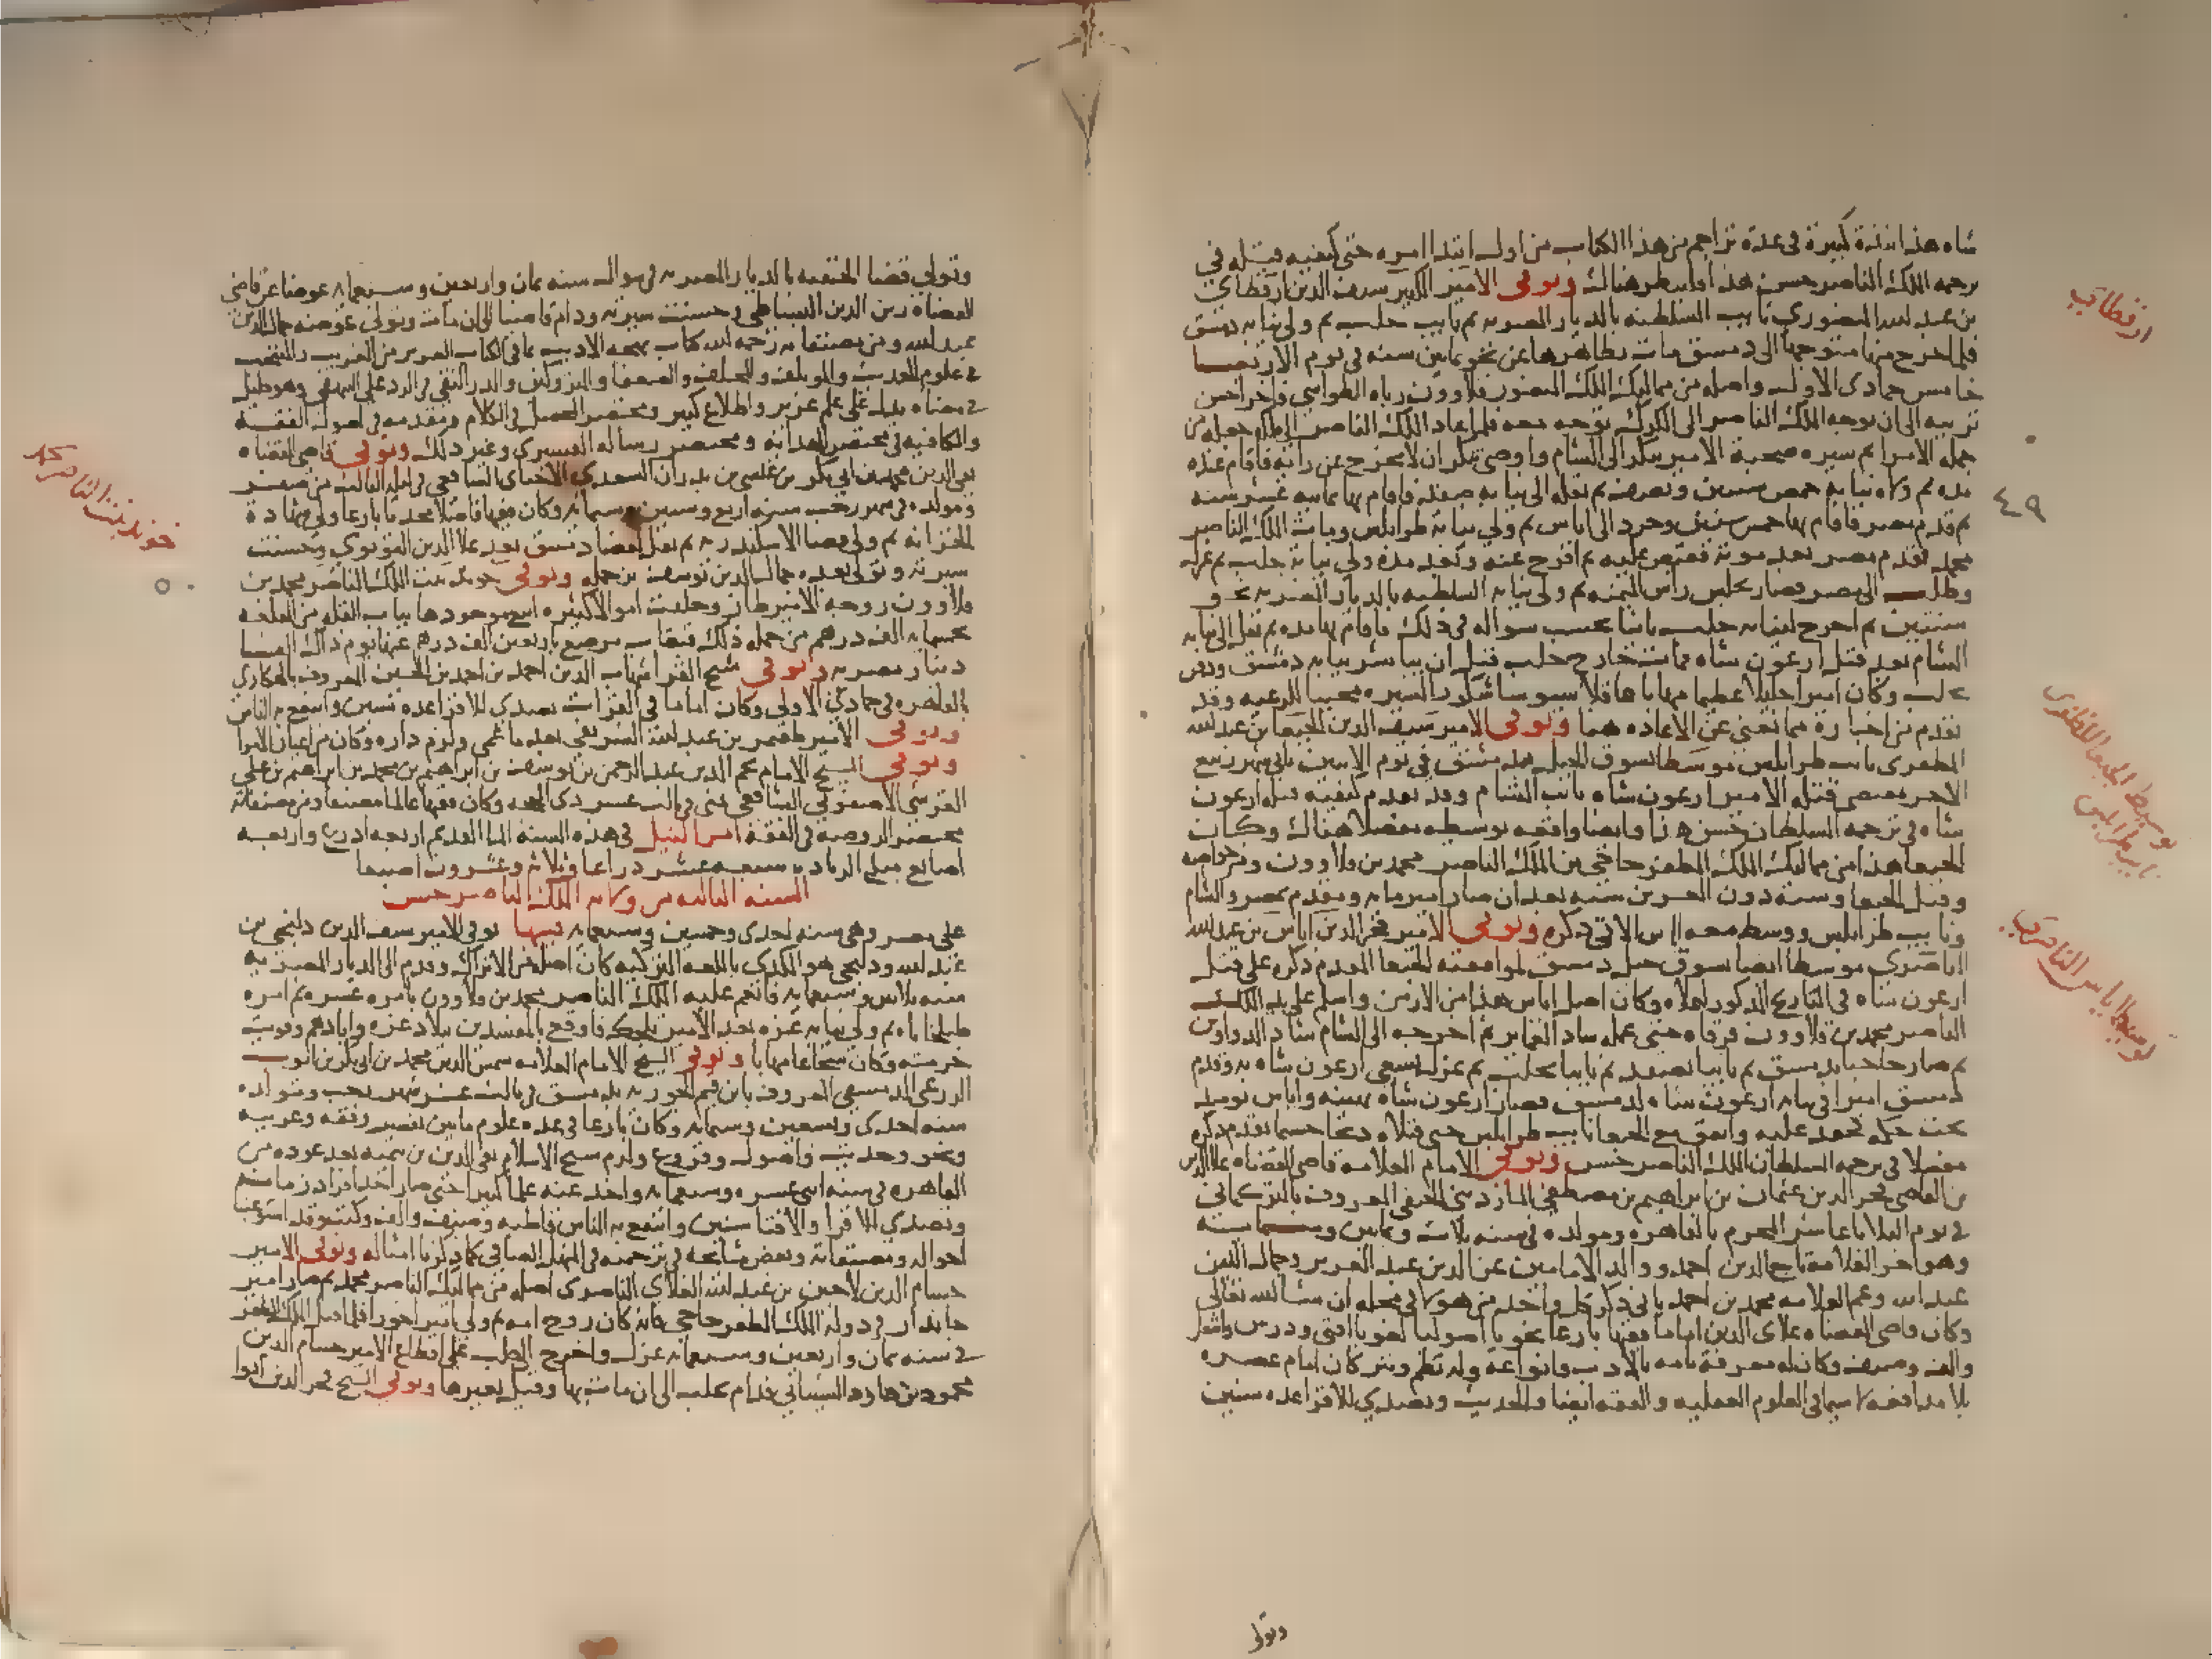 شاه هذا نبذة كبيرة في عدة تراجم من هذا الكتاب من اول ابتدا امره حتى كيفيه قتله في
ترجمه الملك الناصر حسن هذا فلينظر هناك وتوفي الامير الكبير سيف الدين ارقطاي
بن عبد الله المنصوري نايب السلطنه بالديار المصريه ثم نايب حلب ثم ولي نيابه دمشق
فلما خرج منها متوجها الى دمشق مات بظاهرها عن نحو ثمانين سنه في يوم الاربعا
خامس جمادى الاولى واصله من مماليك الملك المنصور قلاوون رباه الطواشي فاخر احسن
تربيه الى ان توجه الملك الناصر الى الكرك توجه معه فلما عاد الملك الناصر الى ملكه جعله من
جمله الامرا ثم سيره صحبة الامير تنكز الى الشام واوصى تنكز ان لا يخرج عن رايه فاقام عنده
مده ثم ولاه نيابه حمص سنتين ونصف ثم نقله الى نيابه صفد فاقام بها ثمانيه عشر سنه
ثم قدم مصر فاقام بها خمس سنين وجرد الى اياس ثم ولي نيابه طرابلس ومات الملك الناصر
محمد فقدم مصر بعد موته فقبض عليه ثم افرج عنه وبعد مده ولي نيابه حلب ثم عزل
وطلب الى مصر فصار يجلس راس الميمنه ثم ولي نيابه السلطنه بالديار المصريه نحو
سنتين ثم اخرج لنيابه حلب ثانيا بحسب سواله في ذلك فاقام بها مده ثم نقل الى نيابه
الشام بعد قتل ارغون شاه فمات خارج حلب قبل ان يباشر نيابه دمشق ودفن
بحلب وكان اميرا جليلا عظيما مهابا عاقلا سيوسا مشكور السيره محببا للرعيه وقد
تقدم من اخباره ما يغني عن الاعاده هنا وتوفي الامير سيف الدين الجيبغا بن عبد الله
المظفري نايب طرابلس موسطا بسوق الخيل بدمشق في يوم الاثنين ثاني شهر ربيع
الاخر بمقتضى قتله الامير ارغون شاه نايب الشام وقد تقدم كيفيه قتله ارغون
شاه في ترجمه السلطان حسن هذا وايضا واقعه توسيطه مفصلا هناك وكان
الجيبغا هذا من مماليك الملك المظفر حاجي بن الملك الناصر محمد بن قلاوون ومن خواصه
وقتل الجيبغا وسنه دون العشرين سنه بعد ان صار امير مايه ومقدم بمصر والشام
ونايب طرابلس ووسط معه اياس الاتي ذكره وتوفي الامير فخر الدين اياس بن عبد الله
الناصري موسطا ايضا بسوق خيل دمشق لموافقته لجيبغا المقدم ذكره على قتل
ارغون شاه في التاريخ المذكور اعلاه وكان اصل اياس هذا من الارمن واسلم على يد الملك
الناصر محمد بن قلاوون فرقاه حتى عمله شاد العماير ثم اخرجه الى الشام شاد الدواوين
ثم صار حاجبا بدمشق ثم نايبا بصفد ثم نايبا بحلب ثم عزل بسعي ارغون شاه به وقدم
دمشق اميرا في نيابه ارغون شاه لدمشق فصار ارغون شاه يهينه واياس يوميذ
تحت حكمه فحقد عليه واتفق مع الجيبغا نايب طرابلس حتى قتلاه ذبحا حسبما تقدم ذكره
مفصلا في ترجمه السلطان الملك الناصر حسن وتوفي الامام العلامه قاضي القضاه علا الدين
بن القاضي فخر الدين عثمان بن ابراهيم بن مصطفى المارديني الحنفي المعروف بالتركماني
في يوم الثلاثا عاشر المحرم بالقاهره ومولده في سنه ثلاث وثمانين وستماية
وهو اخو العلامة تاج الدين احمد ووالد الامامين عز الدين عبد العزيز وجمال الدين
عبد الله وعم العلامه محمد بن احمد ياتي ذكر كل واحد من هولا في محله ان شا الله تعالى
وكان قاضي القضاه علاي الدين اماما فقيها بارعا نحويا اصوليا لغويا افتى ودرس واشغل
والف وصنف وكان له معرفة تامه بالادب وانواعه وله نظم ونثر كان امام عصره
بلا مدافعه لا سيما في العلوم العقليه والفقه ايضا والحديث وتصدي للاقرا عده سنين
وتولى
ارقطاي
٤٩
توسيط الجيبغا المظفري
نايب طرابلس
توسيط اياس الناصري
وتولي قضا الحنفيه بالديار المصريه في شوال سنه ثمان واربعين وسبعمايه عوضا عن قاضي
القضاه زين الدين البسطامي وحسنت سيرته ودام قاضيا الى ان مات وتولى عوضه جمال الدين
عبد الله ومن مصنفاته رحمه الله كتاب بهجه الاديب بما في الكتاب العزيز من الغريب والمنتخب
في علوم الحديث والموتلف والمختلف والضعفا والمتروكين والدر النقي في الرد على البيهقي وهو جليل
في معناه يدل على علم غزير واطلاع كبير ومختصر المحصل في الكلام ومقدمه في اصول الفقه
والكفايه في مختصر الهدايه ومختصر رساله القشيري وغير ذلك وتوفي قاضي القضاه
تقي الدين محمد بن ابي بكر بن عيسى بن بدران السعدي الاخناي المالكي في ليله الثالث من صفر
ومولده في شهر رجب سنه اربع وستين وستمايه وكان فقيها فاضلا محدثا بارعا ولي شهاده
الخزانه ثم ولي قضا الاسكندريه ثم نقل لقضا دمشق بعد علا الدين القونوي وحسنت
سيرته وتولى بعده جمال الدين يوسف بن جمله وتوفي خوند بنت الملك الناصر محمد بن
قلاوون زوجه الامير طاز وخلفت اموالا كثيره ابيع موجودها بباب القله من القلعه
بخمسمايه الف درهم من جمله ذلك قبقاب مرصع باربعين الف درهم عنها يوم ذاك الفي
دينار مصريه وتوفي شيخ القرا شهاب الدين احمد بن احمد بن الحسين المعروف بالهكاري
بالقاهره في جمادي الاولى وكان اماما في القرات تصدي للاقرا عده سنين وانتفع به الناس
وتوفي الامير طقتمر بن عبد الله الشريفي بعد ما عمي ولزم داره وكان من اعيان الامرا
وتوفي الشيخ الامام نجم الدين عبد الرحمن بن يوسف بن ابراهيم بن محمد بن ابراهيم بن علي
القرشي الاصفوني الشافعي بمنى في ثالث عشر ذي الحجه وكان فقيها عالما مصنفا ومن مصنفاته
مختصر الروضه في الفقه امر النيل في هذه السنه الما القديم اربعه اذرع واربعه
اصابع مبلغ الزياده سبعه عشر ذراعا وثلاثه وعشرون اصبعا
السنه الثالثه من ولايه الملك الناصر حسن
على مصر وهي سنه احدى وخمسين وسبعمايه فيها توفي الامير سيف الدين دلنجي بن
عبد الله ودلنجي هو المكدي باللغه التركيه كان اصله من الاتراك وقدم الى الديار المصريه
سنه ثلاثين وسبعمايه فانعم عليه الملك الناصر محمد بن قلاوون بامره عشره ثم امره
طبلخاناه ثم ولي نيابه غزه بعد الامير تلجك فاوقع بالمفسدين ببلاد غزه وابادهم وقويت
حرمته وكان شجاعا مهابا وتوفي الشيخ الامام العلامه شمس الدين محمد بن ابي بكر بن ايوب
الزرعي الدمشقي المعروف بابن قيم الجوزيه بدمشق في ثالث عشر شهر رجب ومولده
سنه احدى وتسعين وستمايه وكان بارعا في عده علوم ما بين تفسير وفقه وعربيه
ونحو وحديث واصول وفروع ولزم شيخ الاسلام تقي الدين بن تيميه بعد عوده من
القاهره في سنه اثني عشره وسبعمايه واخذ عنه علما كثيرا حتى صار احد افراد زمانه
وتصدي للاقرا والافتا سنين وانتفع به الناس قاطبه وصنف والف وكتب وقد استوعبنا
احواله ومصنفاته وبعض مشايخه في ترجمته في المنهل الصافي كما ذكرنا امثاله وتوفي الامير
حسام الدين لاجين بن عبد الله العلاي الناصري اصله من مماليك الناصر محمد ثم صار امير
جاندار في دوله الملك المظفر حاجي فانه كان زوج امه ثم ولي امير اخور فلما قتل الملك المظفر
في سنه ثمان واربعين وسبعمايه عزل واخرج الى حلب على اقطاع الامير حسام الدين
محمود بن داود الشيباني فدام بحلب الى ان مات بها وقيل بغيرها وتوفي الشيخ فخر الدين ابوا
خوند بنت الناصر محمد
٥٠